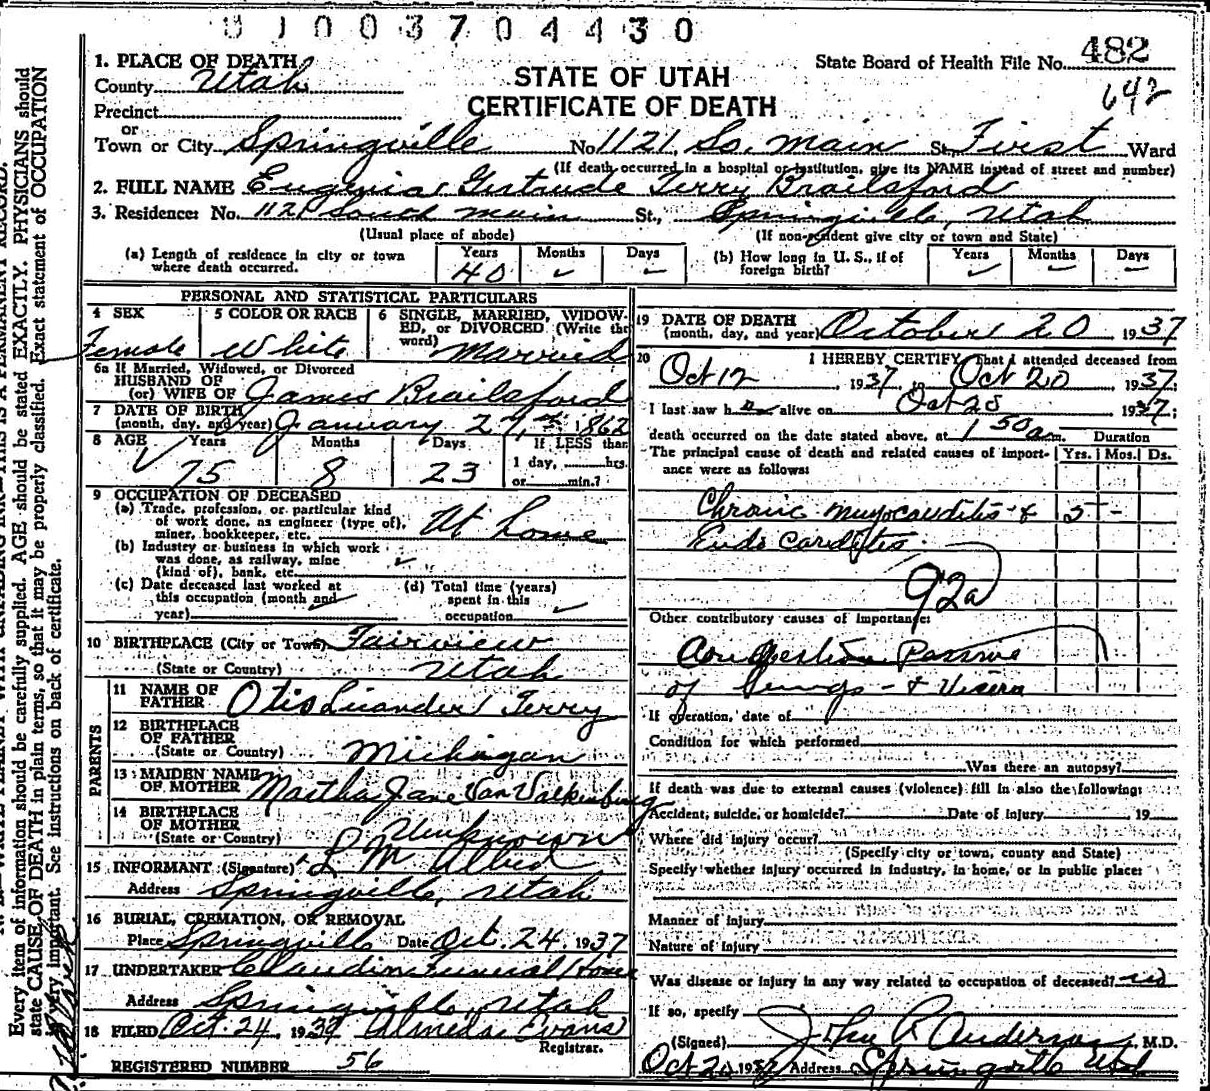 0 1 0 0 3 7 0 4 4 3 0
State Board of Health File No. 482
642
STATE OF UTAH
CERTIFICATE OF DEATH
1. PLACE OF DEATH
County Utah
Precinct
or
Town or City Springville No. 1121 So. Main St. First Ward
(If death occurred in a hospital or institution, give its NAME instead of street and number)
2. FULL NAME Eugenia Gertrude Terry Brailsford
3. Residence: No. 1121 South Main St., Springville, Utah
(Usual place of abode) (If non-resident give city or town and State)
(a) Length of residence in city or town where death occurred. Years 40 Months Days
(b) How long in U. S., if of foreign birth? Years Months Days
PERSONAL AND STATISTICAL PARTICULARS
4 SEX Female
5 COLOR OR RACE White
6 SINGLE, MARRIED, WIDOWED, or DIVORCED (Write the word) Married
6a If Married, Widowed, or Divorced
HUSBAND OF
(or) WIFE OF James Brailsford
7 DATE OF BIRTH
(month, day, and year) January 27, 1862
8 AGE Years 75 Months 8 Days 23 If LESS than 1 day, hrs. or min.?
9 OCCUPATION OF DECEASED
(a) Trade, profession, or particular kind
of work done, as engineer (type of),
miner, bookkeeper, etc. At home
(b) Industry or business in which work
was done, as railway, mine
(kind of), bank, etc.
(c) Date deceased last worked at
this occupation (month and
year)
(d) Total time (years)
spent in this
occupation
10 BIRTHPLACE (City or Town) Fairview
(State or Country) Utah
PARENTS
11 NAME OF
FATHER Otis Liander Terry
12 BIRTHPLACE
OF FATHER
(State or Country) Michigan
13 MAIDEN NAME
OF MOTHER Martha Jane Van Valkenburg
14 BIRTHPLACE
OF MOTHER
(State or Country) Unknown
15 INFORMANT (Signature) L M Allred
Address Springville, Utah
16 BURIAL, CREMATION, OR REMOVAL
Place Springville Date Oct. 24, 1937
17 UNDERTAKER Claudin Funeral Home
Address Springville, Utah
18 FILED Oct. 24, 1937 Almeda Evans
Registrar.
REGISTERED NUMBER 56
19 DATE OF DEATH
(month, day, and year) October 20 1937
20 I HEREBY CERTIFY, That I attended deceased from
Oct 12 1937, to Oct 20 1937;
I last saw h alive on Oct 20 1937;
death occurred on the date stated above, at 1 50 a m. Duration
The principal cause of death and related causes of importance were as follows: Yrs. Mos. Ds.
Chronic myocarditis & 5 -
Endocarditis.
92a
Other contributory causes of importance:
Congestion Passive
of Lungs - & Visera
If operation, date of
Condition for which performed
Was there an autopsy?
If death was due to external causes (violence) fill in also the following:
Accident, suicide, or homicide? Date of injury 19
Where did injury occur?
(Specify city or town, county and State)
Specify whether injury occurred in industry, in home, or in public place:
Manner of injury
Nature of injury
Was disease or injury in any way related to occupation of deceased? no
If so, specify
(Signed) John R Anderson, M.D.
Oct 20 1937 Address Springville Utah
Every item of information should be carefully supplied. AGE should be stated EXACTLY. PHYSICIANS should
state CAUSE OF DEATH in plain terms, so that it may be properly classified. Exact statement of OCCUPATION
very important. See instructions on back of certificate.